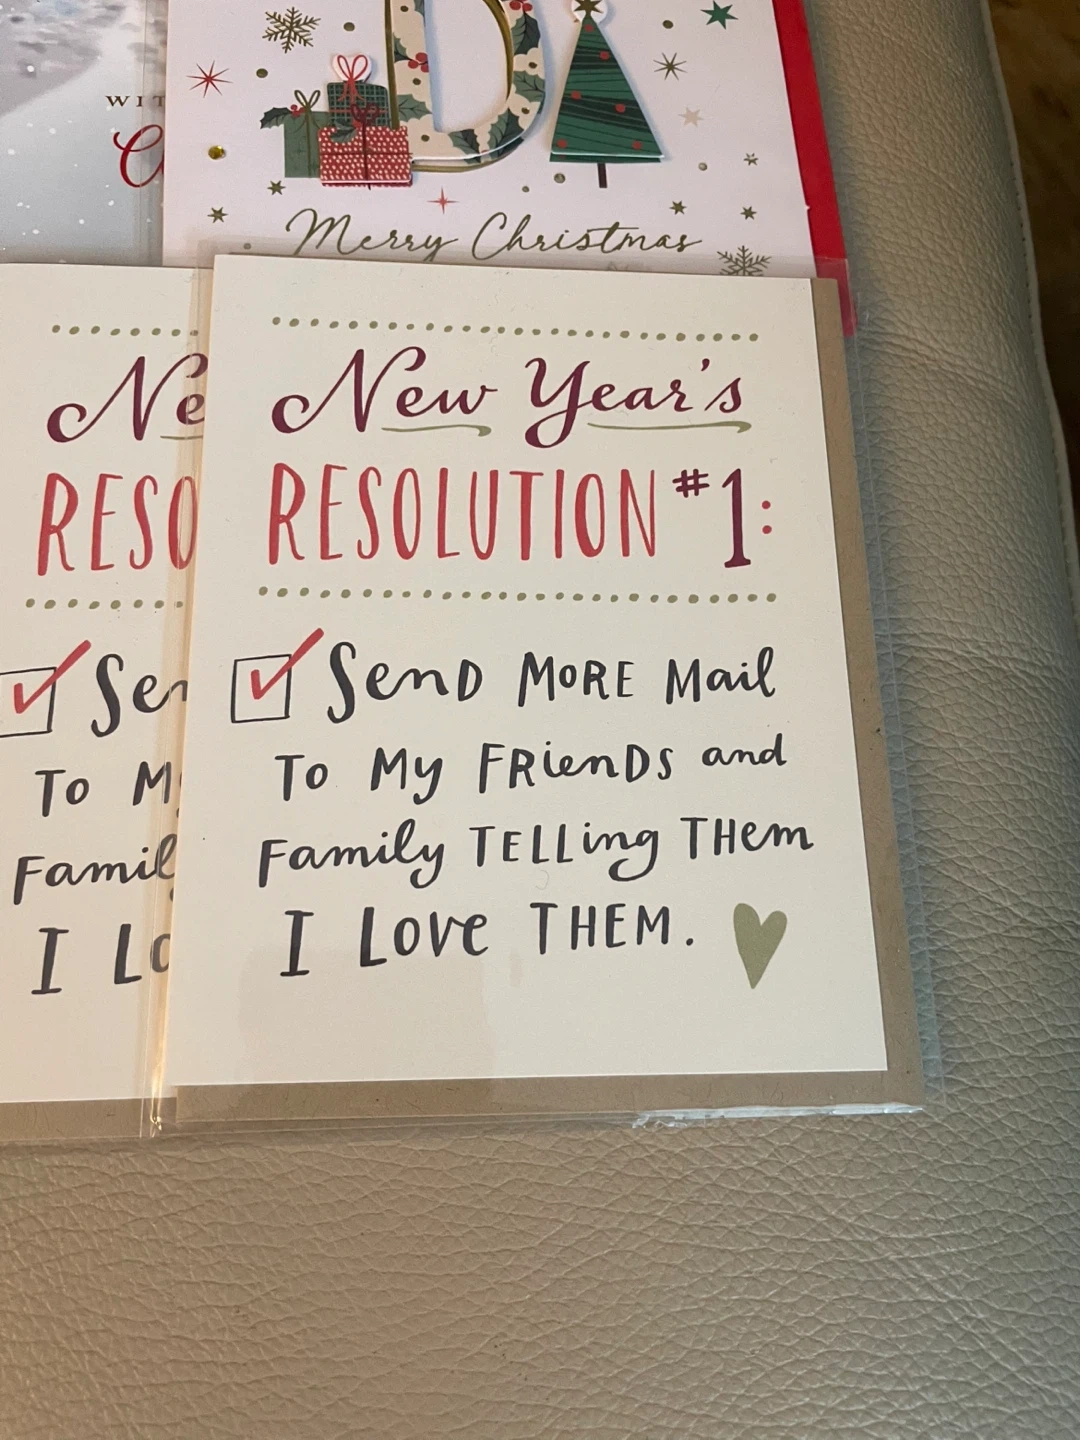 WIT
D
Merry Christmas
New Year's
RESOLUTION #1:
Send MORE Mail
To My Friends and
Family Telling Them
I Love THEM.
Ne
RESO
Sen
To My
Famil
I Lo